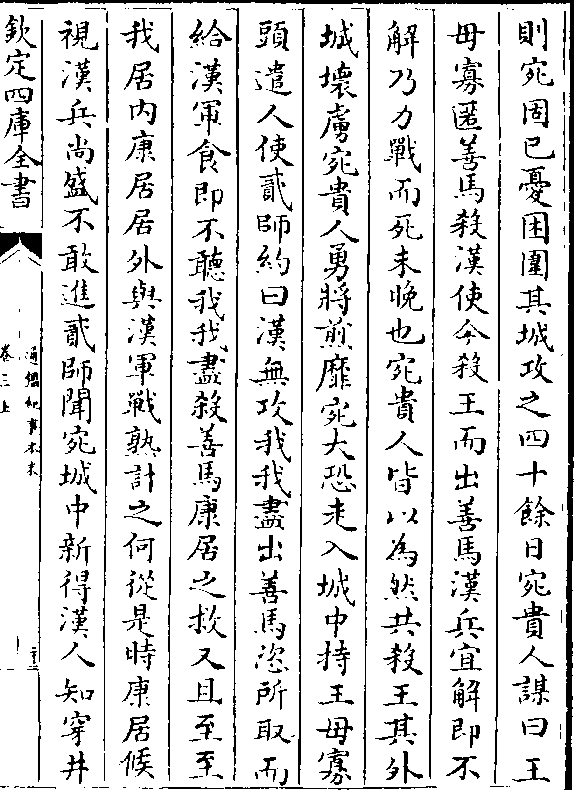 則宛固已憂困圍其城攻之四十餘日宛貴人謀曰王
毋寡匿善馬殺漢使今殺王而出善馬漢兵宜解即不
解乃力戰而死未晚也宛貴人皆以為然共殺王其外
城壊虜宛貴人勇將煎靡宛大恐走入城中持王毋寡
頭遣人使貳師約曰漢無攻我我盡出善馬恣所取而
給漢軍食即不聽我我盡殺善馬康居之救又且至至
我居内康居居外與漢軍戰熟計之何從是時康居候
視漢兵尚盛不敢進貳師聞宛城中新得漢人知穿井
欽定四庫全書
通鑑紀事本末
卷三上